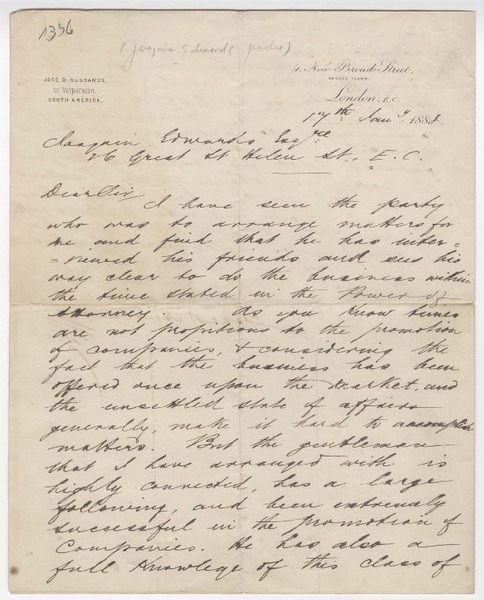 1336
(Joaquin Edwards padre)
JOSE D. HUSBANDS,
OF Valparaiso,
SOUTH AMERICA.
4, New Broad Street,
SECOND FLOOR.
London, E.C.
17th Jany 1883
Joaquin Edwards Esqre
26 Great St Helen St., E. C.
Dear Sir
I have seen the party
who was to arrange matters for
me and find that he has inter=
=viewed his friends and sees his
way clear to do the business within
the time stated in the Power of
Attorney. As you know times
are not propitious to the promotion
of companies, & considering the
fact that the business has been
offered once upon the market, and
the unsettled state of affairs
generally, make it hard to accomplish
matters. But the gentleman
that I have arranged with is
highly connected, has a large
following, and been extremely
successful in the promotion of
Companies. He has also a
full knowlege of this class of